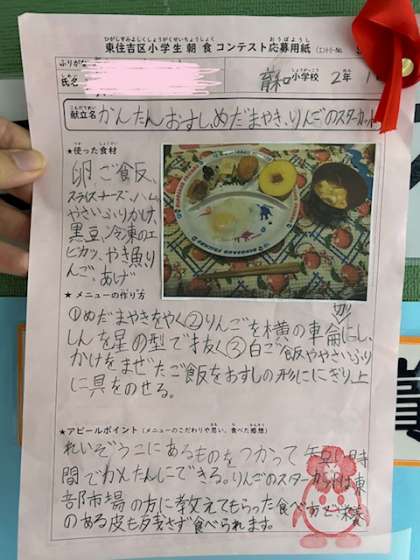 東住吉区小学生朝食コンテスト応募用紙 (エントリーNo.
ふりがな
氏名
育和小学校 2年
献立名 かんたんおすし、めだまやき、りんごのスターカット
★使った食材
卵、ご飯、
スライスチーズ、ハム、
やさいふりかけ、
黒豆、冷凍のエ
ビカツ、やき魚、り
んご、あげ
★メニューの作り方
①めだまやきをやく②りんごを横の車輪切りにし、
しんを星の型で抜く③白ご飯ややさいふり
かけをまぜたご飯をおすしの形ににぎり上
に具をのせる。
★アピールポイント(メニューのこだわりや思い、食べた感想)
れいぞうこにあるものをつかって短い時
間でかんたんにできる。りんごのスターカットは東
部市場の方に教えてもらった食べ方で栄養
のある皮も残さず食べられます。